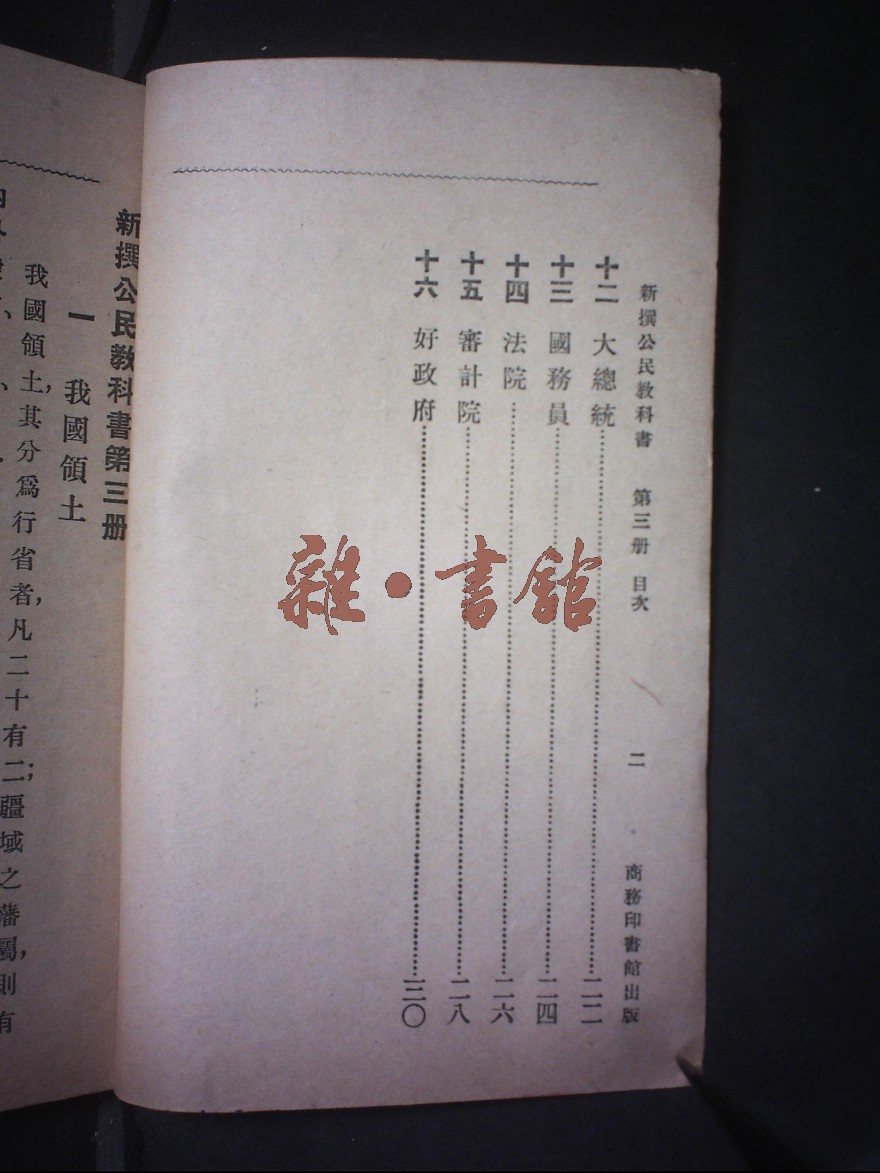 新撰公民教科書 第三册 目次 二 商務印書館出版
十二 大總統 二二
十三 國務員 二四
十四 法院 二六
十五 審計院 二八
十六 好政府 三〇
雜·書館
新撰公民教科書第三册
一 我國領土
我國領土,其分爲行省者,凡二十有二;疆域之藩屬,則有